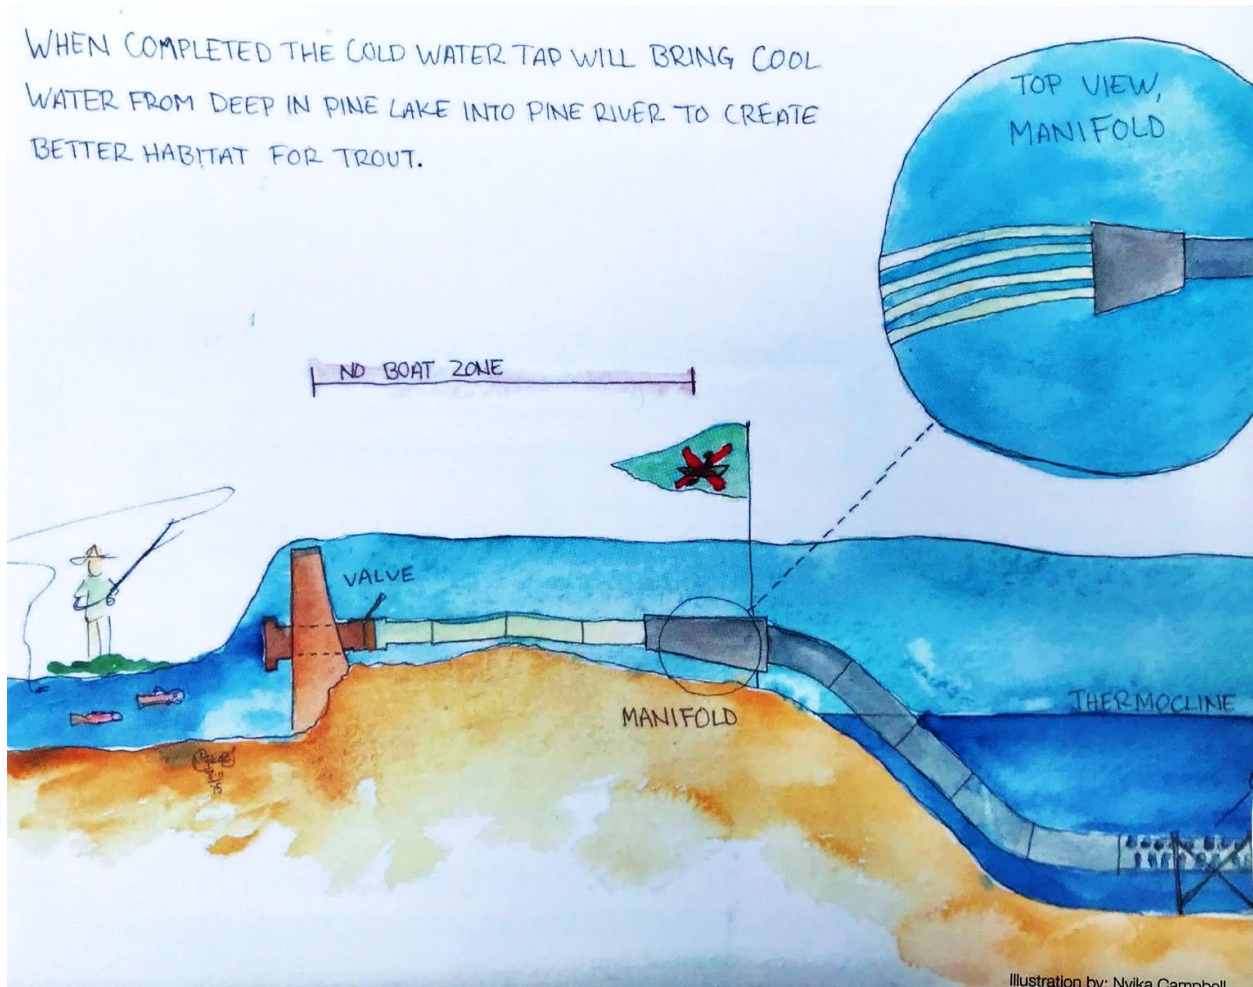 WHEN COMPLETED THE COLD WATER TAP WILL BRING COOL
WATER FROM DEEP IN PINE LAKE INTO PINE RIVER TO CREATE
BETTER HABITAT FOR TROUT.
TOP VIEW,
MANIFOLD
NO BOAT ZONE
VALVE
THERMOCLINE
MANIFOLD
8-11
'15
Illustration by: Nyika Campbell